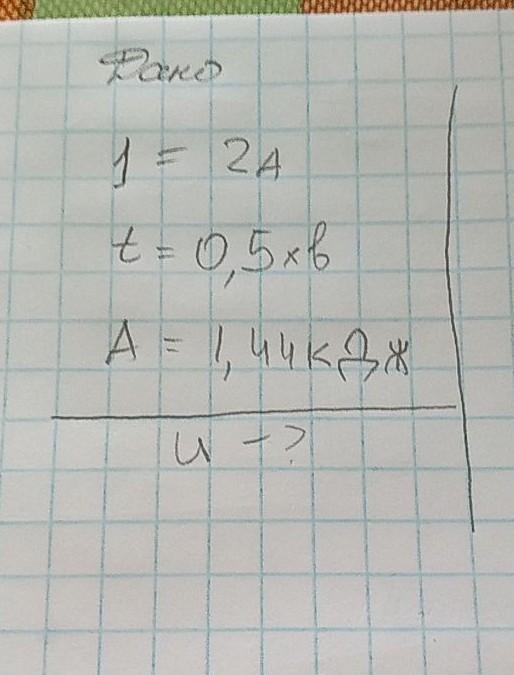 Дано
I = 2А
t = 0,5 хв
A = 1,44 кДж
U - ?